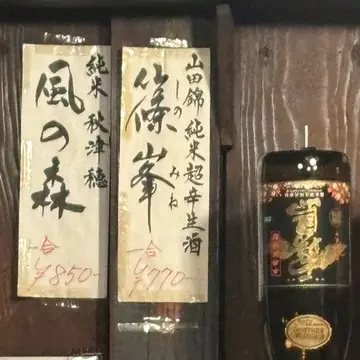 純米 秋津穂
風の森
一合
¥850-
山田錦 純米超辛生酒
しの みね
篠峯
一合
¥770-